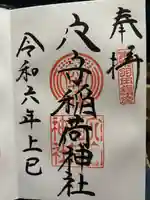 奉拝
穴守稲荷神社
令和六年上巳